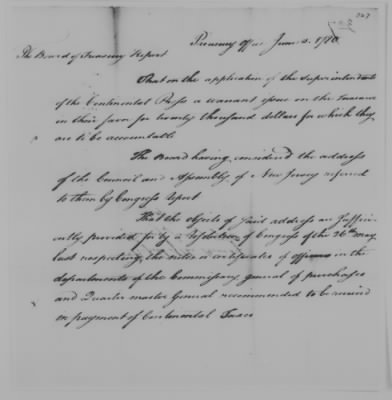 227
Treasury Office June 2. 1780
The Board of Treasury Report
That on the application of the Superintendents
of the Continental Press a warrant issue on the Treasurer
in their favor for twenty thousand dollars for which they
are to be accountable
The Board having considered the address
of the Council and Assembly of New Jersey referred
to them by Congress Report
That the objects of said address are suffici-
ently provided for by a resolution of Congress of the 26th May
last respecting the notes or certificates of officers in the
departments of the Commissary general of purchases
and Quarter master General recommended to be received
in payment of Continental Taxes